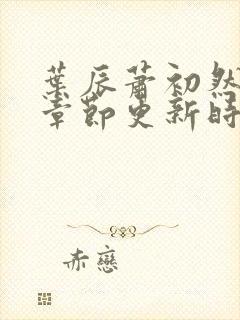 葉辰蕭初然
章節更新時
赤戀